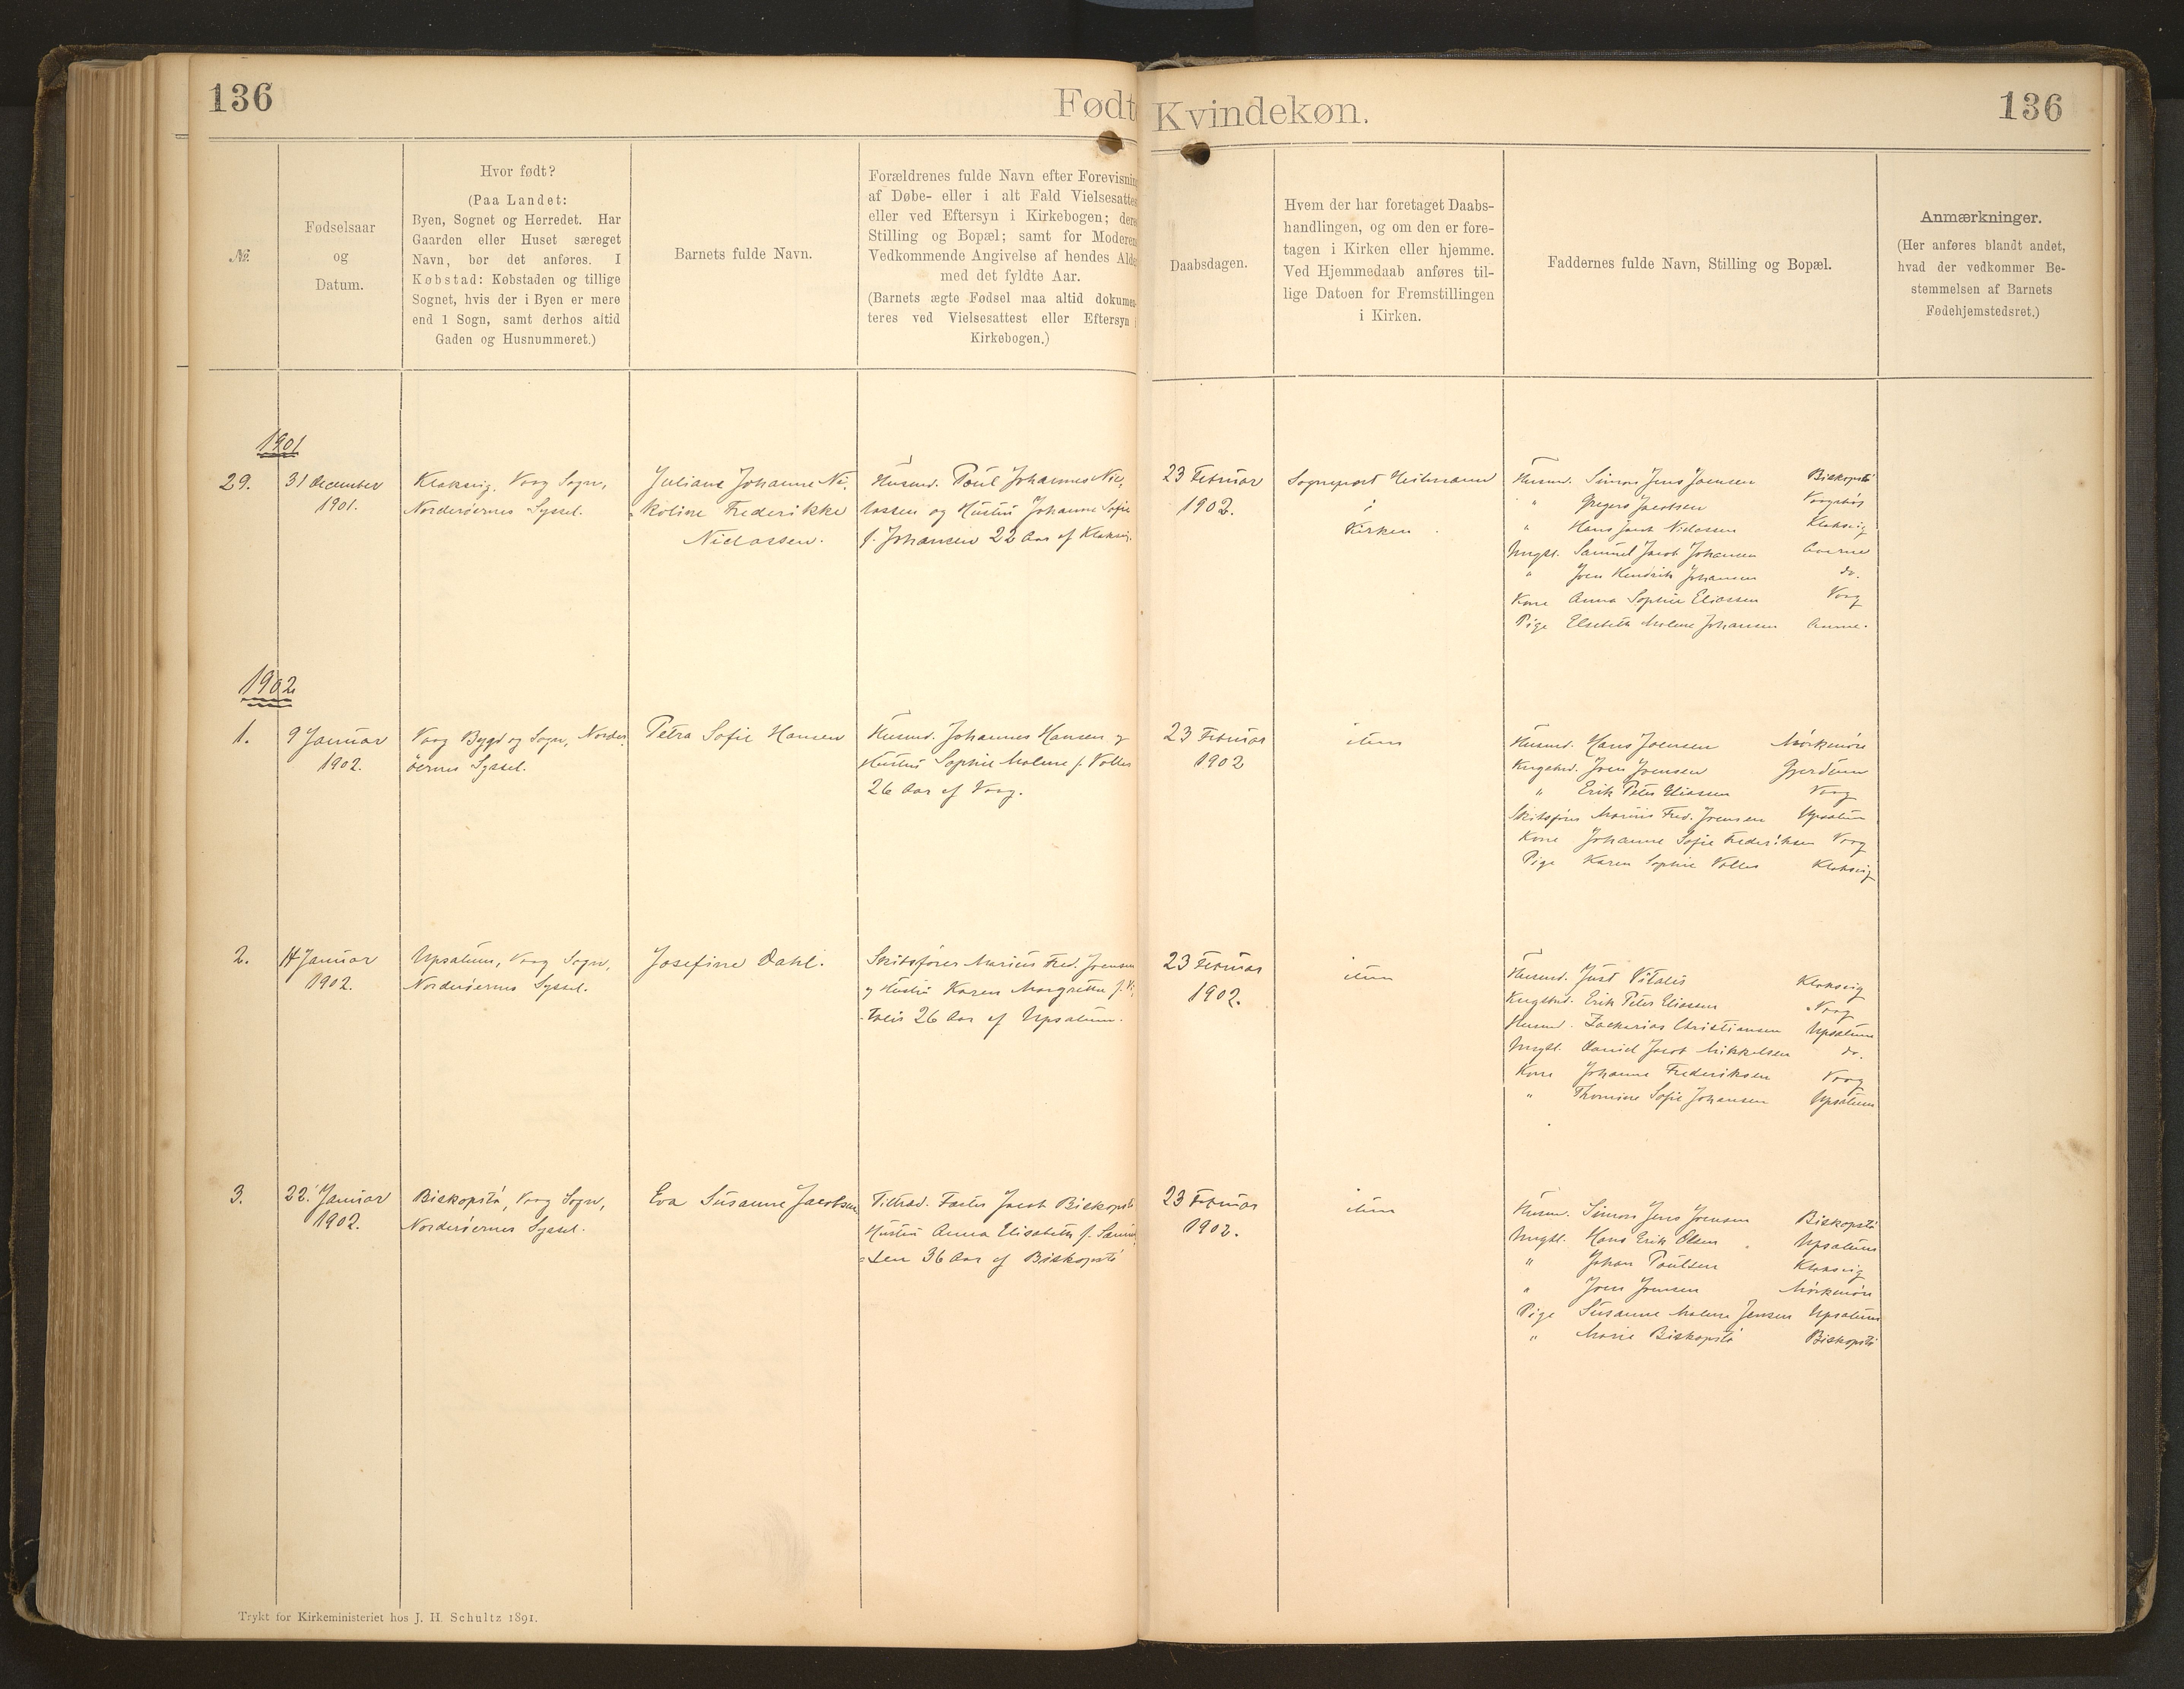 136
Født Kvindekøn.
136
№
Fødselsaar
og
Datum.
Hvor født?
(Paa Landet:
Byen, Sognet og Herredet. Har
Gaarden eller Huset særeget
Navn, bør det anføres. I
Købstad: Købstaden og tillige
Sognet, hvis der i Byen er mere
end 1 Sogn, samt derhos altid
Gaden og Husnummeret.)
Barnets fulde Navn.
Forældrenes fulde Navn efter Forevisnin
af Døbe- eller i alt Fald Vielsesattes
eller ved Eftersyn i Kirkebogen; dere
Stilling og Bopæl; samt for Moderen
Vedkommende Angivelse af hendes Alde
med det fyldte Aar.
(Barnets ægte Fødsel maa altid dokumen-
teres ved Vielsesattest eller Eftersyn i
Kirkebogen.)
Daabsdagen.
Hvem der har foretaget Daabs-
handlingen, og om den er fore-
tagen i Kirken eller hjemme.
Ved Hjemmedaab anføres til-
lige Datoen for Fremstillingen
i Kirken.
Faddernes fulde Navn, Stilling og Bopæl.
Anmærkninger.
(Her anføres blandt andet,
hvad der vedkommer Be-
stemmelsen af Barnets
Fødehjemstedsret.)
1901
29.
31 december
1901.
Klaksvig. Vaag Sogn,
Norderøernes Syssel.
Juliane Johanne Ni-
koline Frederikke
Niclassen.
Husmd. Poul Johannes Nic-
lassen og Hustru Johanne Sofie
f. Johansen 22 Aar af Klaksvig.
23 Februar
1902.
Sognepræst Heilmann
i
Kirken
Husmd. Simon Jens Joensen Biskopstø
" Gregers Jacobsen Vaagsbøs
" Hans Jacob Niclassen Klaksvig
Ungkl. Samuel Jacob Johansen
" Joen Hendrik Johansen do.
Kone Anna Sophie Eliassen Vaag
Pige Elsebeth Malene Johansen
1902
1.
9 Januar
1902.
Vaag Bygd og Sogn, Norder-
øernes Syssel.
Petra Sofie Hansen
Husmd. Johannes Hansen og
Hustru Sophie Malene f. Volles
26 Aar af Vaag.
23 Februar
1902
item
Husmd. Hans Joensen Mørkenøre
Kngsbd. Joen Joensen Gjerdum
" Erik Peter Eliassen Vaag
Skibsfører Marius Fred. Joensen Upsalum
Kone Johanne Sofie Frederiksen Vaag
Pige Karen Sophie Volles Klaksvig
2.
14 Januar
1902.
Upsalum, Vaag Sogn,
Norderøernes Syssel.
Josefine Dahl.
Skibsfører Marius Fred. Joensen
og Hustru Karen Margrethe f. Vi-
talis 26 Aar af Upsalum.
23 Februar
1902.
item
Husmd. Just Vitalis Klaksvig
Kngsbd. Erik Peter Eliassen Vaag
Husmd. Zacharias Christiansen Upsalum
Ungkl. Daniel Jacob Mikkelsen do.
Kone Johanne Frederiksen Vaag
" Thomine Sofie Johansen Upsalum
3.
22. Januar
1902.
Biskopstø, Vaag Sogn,
Norderøernes Syssel.
Eva Susanne Jacobsen
Tiltræd. Fæster Jacob Biskopstø
Hustru Anna Elisabeth f. Samuel-
sen 36 Aar af Biskopstø
23 Februar
1902.
item
Husmd. Simon Jens Joensen Biskopstø
Ungkl. Hans Erik Olsen Upsalum
" Johan Poulsen Klaksvig
" Joen Joensen Mørkenøre
Pige Susanne Malene Jensen Upsalum
" Marie Biskopstø Biskopstø
Trykt for Kirkeministeriet hos J. H. Schultz 1891.